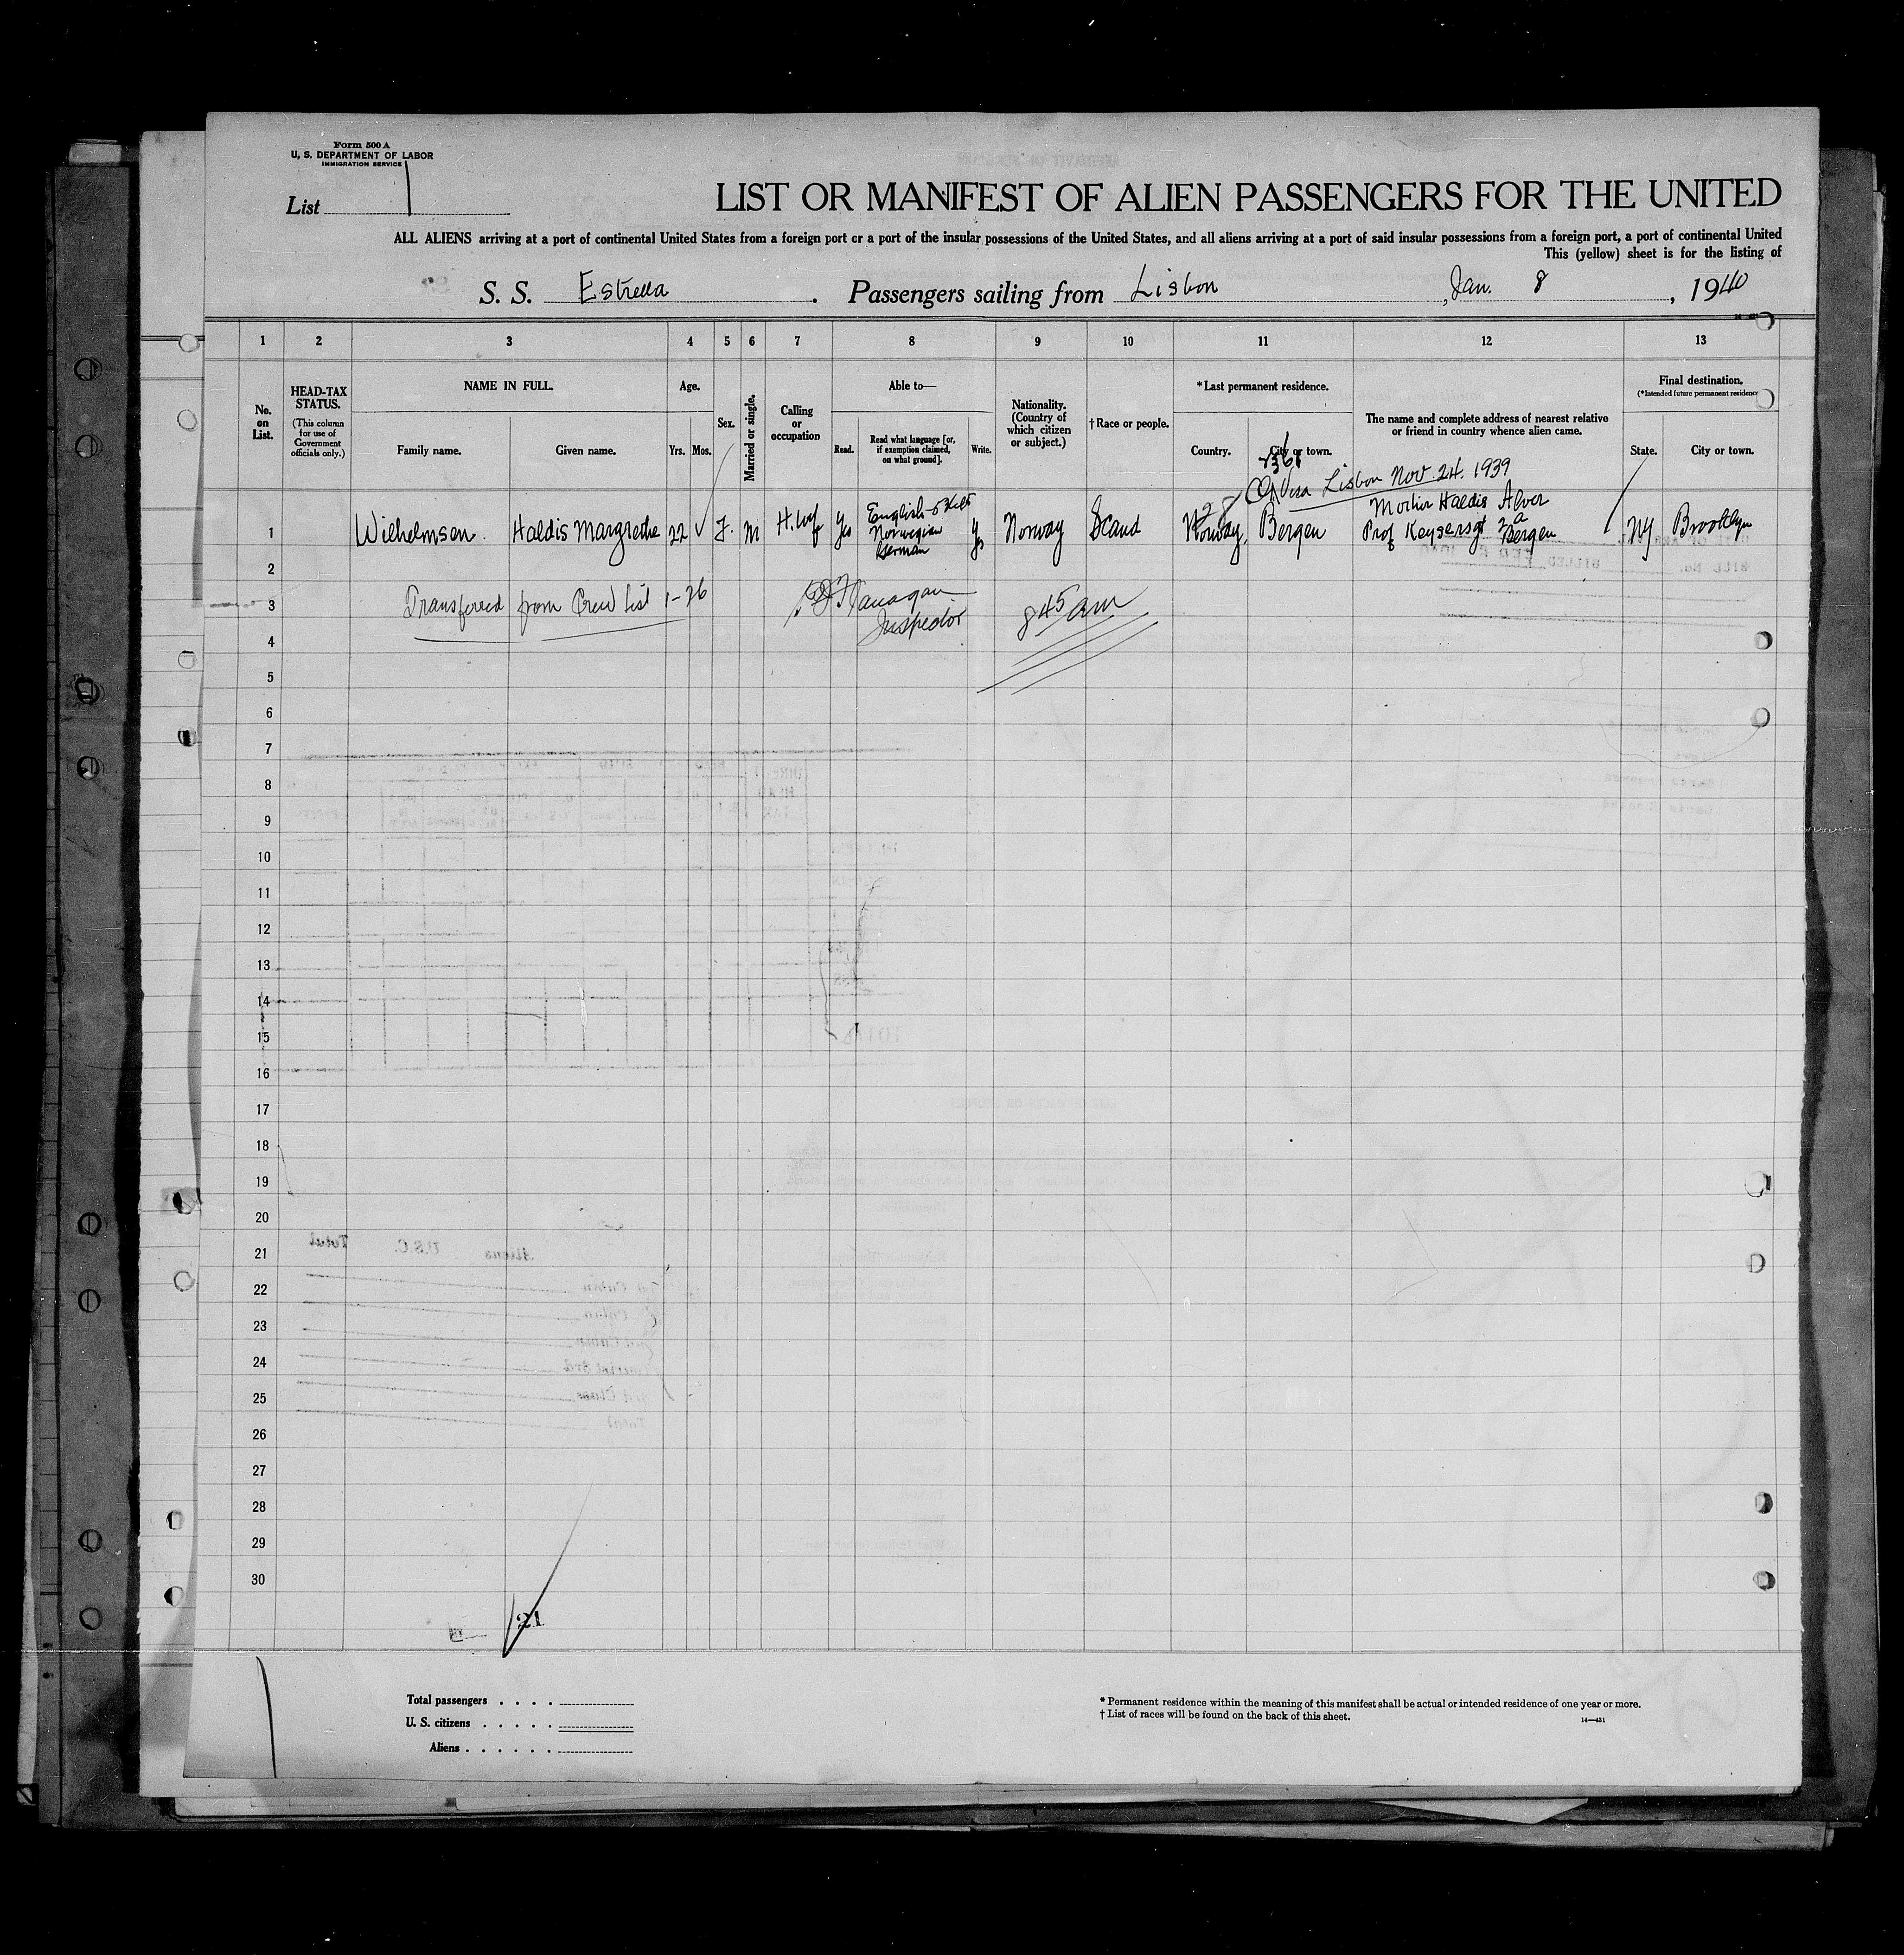 Form 500 A
U. S. DEPARTMENT OF LABOR
IMMIGRATION SERVICE
List 1
LIST OR MANIFEST OF ALIEN PASSENGERS FOR THE UNITED
ALL ALIENS arriving at a port of continental United States from a foreign port or a port of the insular possessions of the United States, and all aliens arriving at a port of said insular possessions from a foreign port, a port of continental United
This (yellow) sheet is for the listing of
S. S. Estrella . Passengers sailing from Lisbon , Jan. 8 , 1940
1 2 3 4 5 6 7 8 9 10 11 12 13
No. on List.
HEAD-TAX STATUS.
(This column for use of Government officials only.)
NAME IN FULL.
Family name. Given name.
Age.
Yrs. Mos.
Sex.
Married or single.
Calling or occupation
Able to—
Read. Read what language [or, if exemption claimed, on what ground]. Write.
Nationality. (Country of which citizen or subject.)
†Race or people.
*Last permanent residence.
Country. City or town.
The name and complete address of nearest relative or friend in country whence alien came.
Final destination.
(*Intended future permanent residence
State. City or town.
Visa Lisbon Nov. 24. 1939
1 Wilhelmsen. Haldis Margrethe 22 F. M H.Wf Yes English Norwegian German Yes Norway Scand Norway, Bergen Mother Haldis Alver Prof Keysersgt 2a Bergen NY Brooklyn
2
3 Transferred from Crew List 1-26 Flanagan Inspector 845 am
4
5
6
7
8
9
10
11
12
13
14
15
16
17
18
19
20
21
22
23
24
25
26
27
28
29
30
21
Total passengers . . . .
U. S. citizens . . . . .
Aliens . . . . . .
* Permanent residence within the meaning of this manifest shall be actual or intended residence of one year or more.
† List of races will be found on the back of this sheet.
14—431